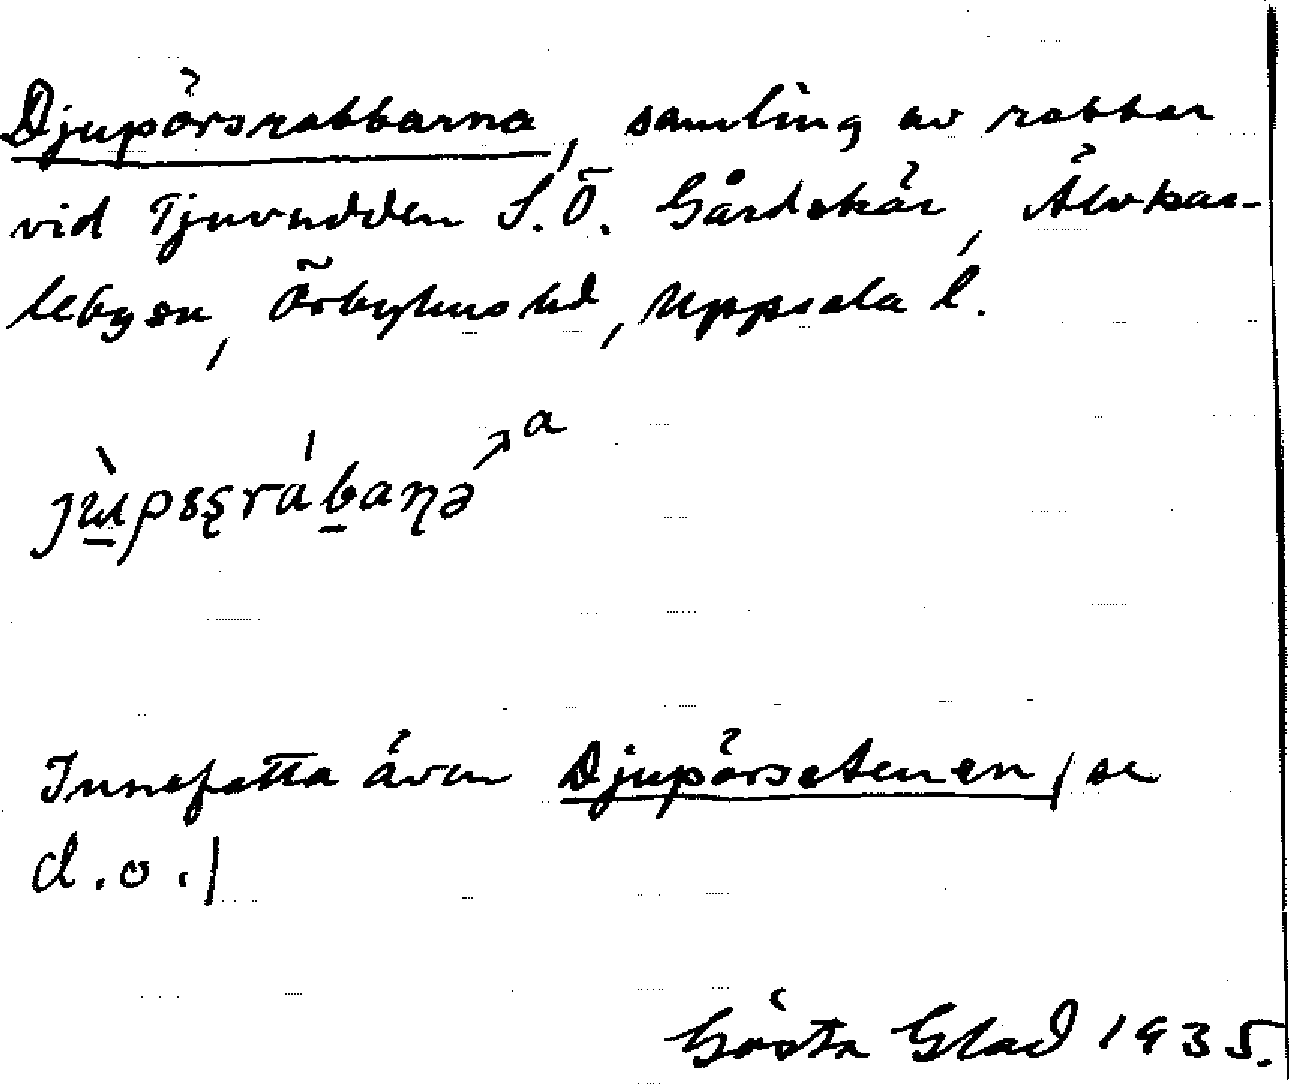 Djupörsrabbarna, samling av rabbar
vid Tjuvudden S.Ö. Gårdskär, Älvkar-
lebysn, Örbyhus hd, Uppsala l.
Innefatta även Djupörsstenen / se
d.o./
Gösta Glad 1935.